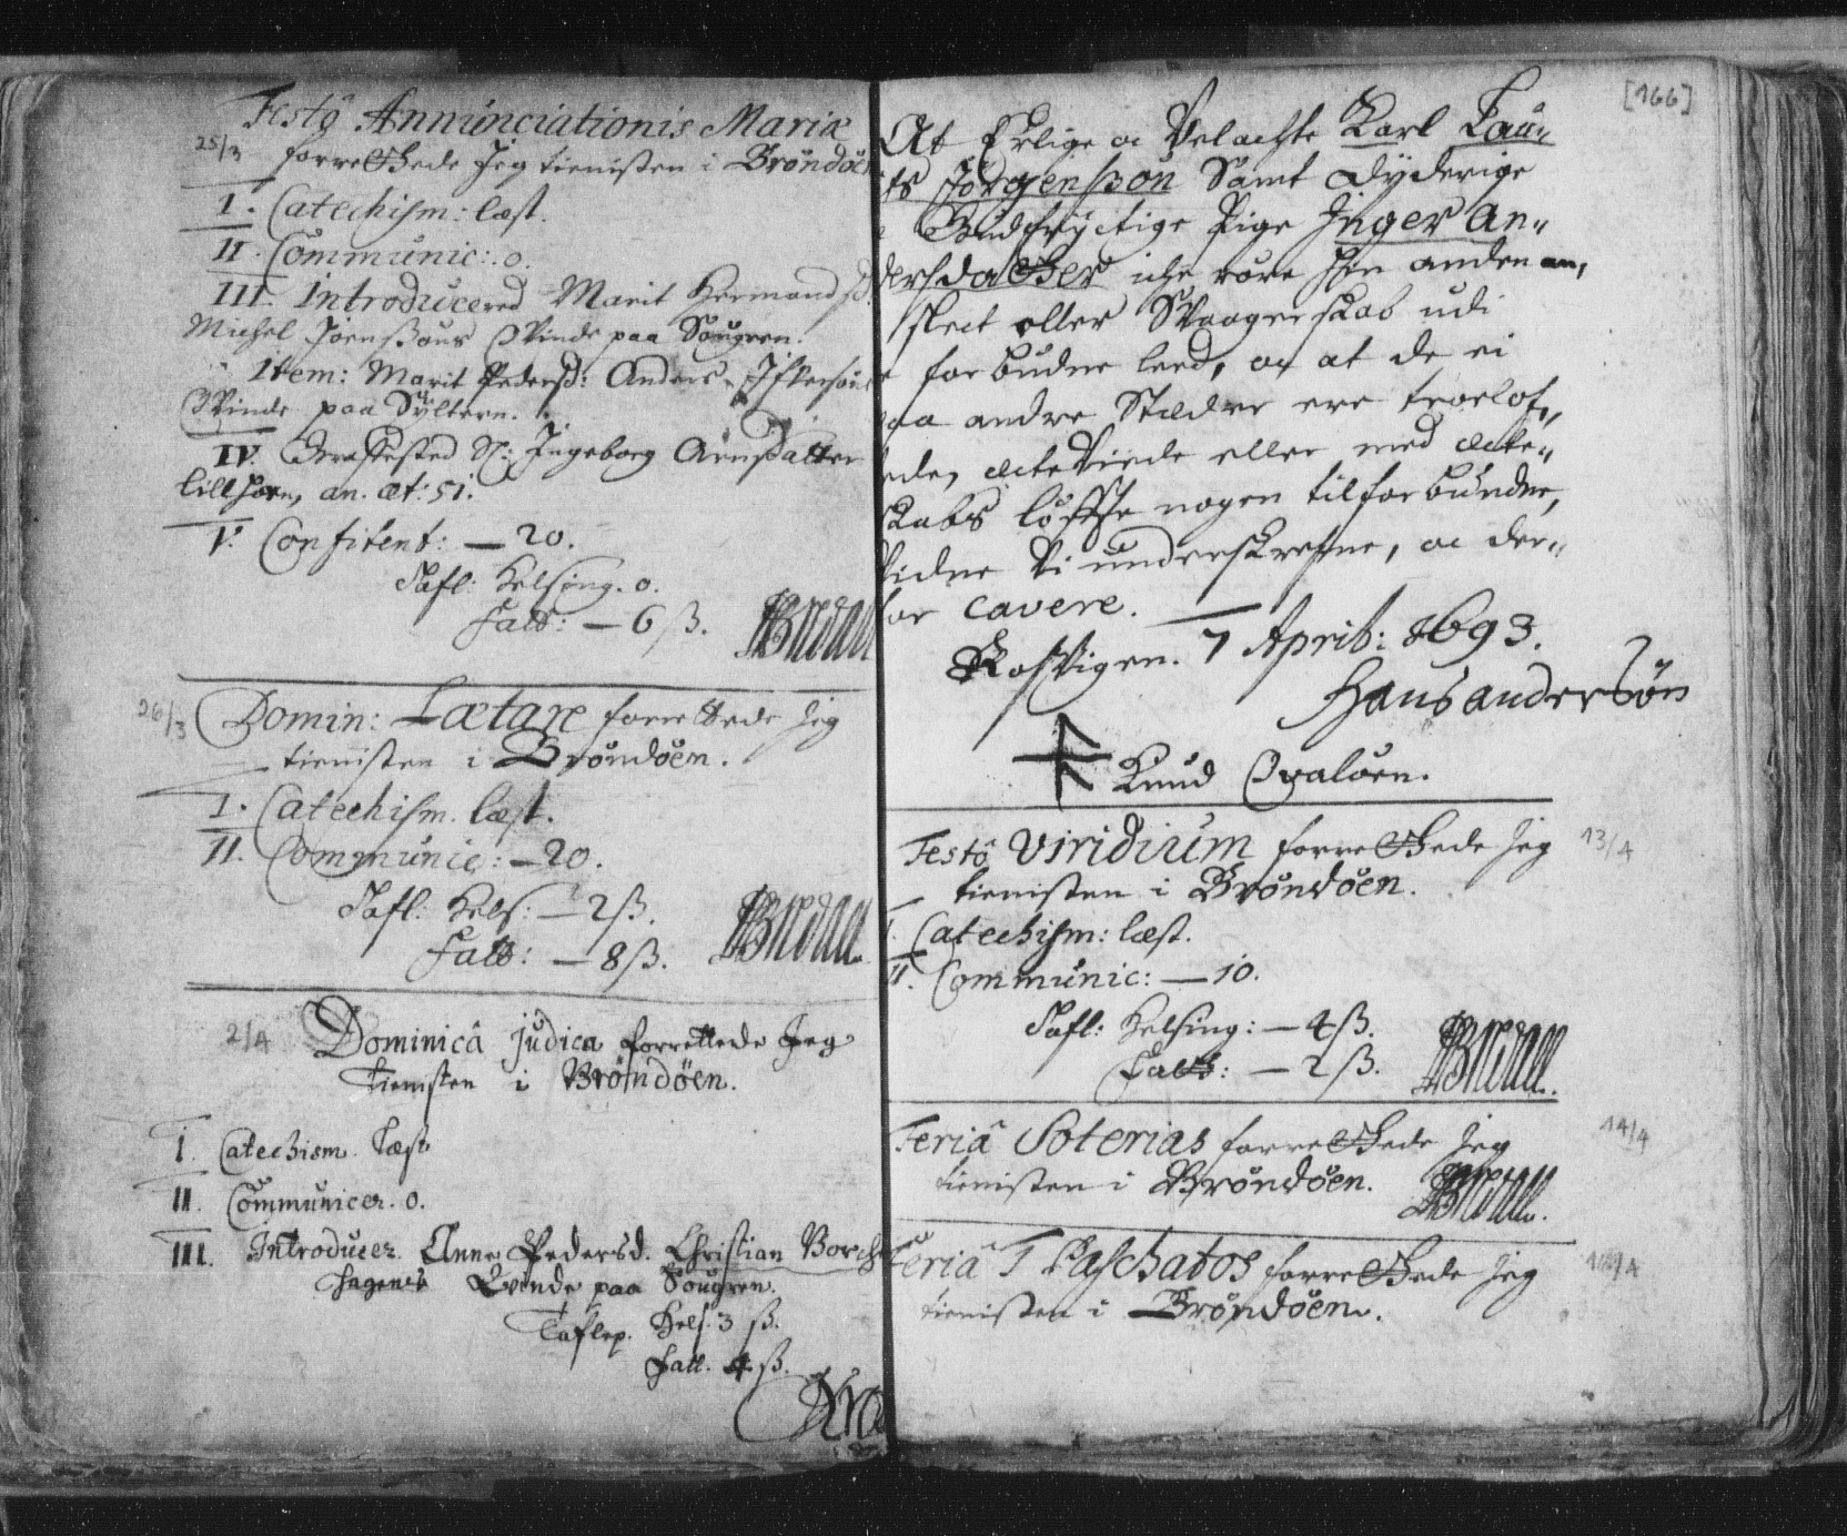 Festô Annunciationis Mariæ
25/3 forrettede Jeg tienisten i Brøndöen
I. Catechism: læst.
II. Communic: 0.
III. Introducered Marit Hermandsd.
Michel Joenssøns Qvinde paa Sougnen.
Item: Marit Pedersd: Anders
Qvinde paa Syltern.
IV. Græssested Sl: Ingeborg Arnsdatter
lill horn, an. æt: 51.
V. Confitent: — 20.
Tafl: Helsing. 0.
Fatt: — 6 ß.
26/3 Domin: Lætare forrettede Jeg
tienisten i Brøndöen.
I. Catechism. læst.
II. Communic: — 20.
Tafl: Hels: — 2 ß.
Fatt: — 8 ß.
2/4 Dominicâ Judica forrettede Jeg
Tienisten i Brøndöen.
I. Catechism. Læst
II. Communicer. 0.
III. Introducer. Anne Pedersd. Christian Borch
hagens Qvinde paa Sougnen.
Taflep. Hels. 3 ß.
Fatt. 4 ß.
[166]
At Erlige oc Velachte Karl Lau„
its Jörgenßön Samt Dyderige
Gudfryctige Pige Inger An„
dersdatter icke røre hin anden an,
slect eller Svagerskab udi
forbudne leed, oc at de ei
paa andre Stæder ere troelof„
vede, ecteviede eller med ecte„
skabs löffte nogen tilforbundne,
Vidne Vi underskrefne, oc der„
for cavere.
Rosvigen. 7 April: 1693.
Hans andersøn
Knud Qvaløen.
Festô Viridium forrettede Jeg 13/4
tienisten i Brøndöen.
I. Catechism: læst.
II. Communic: — 10.
Tafl: Helsing: — 4 ß.
Fatt: — 2 ß.
Feriâ Soterias forrettede Jeg 14/4
tienisten i Brøndöen.
Feriâ I Paschatos forrettede Jeg
tienisten i Brøndöen.